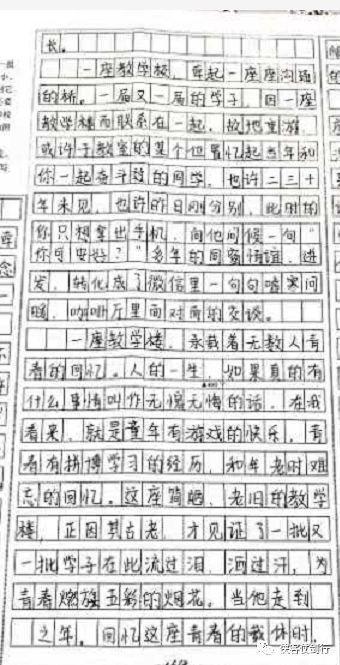 长。
一座教学楼，牵起一座座沟通
的桥。一届又一届的学子，因一座
教学楼而联系在一起。故地重游，
或许于教室的某个位置忆起当年和
你一起奋斗过的同学，也许二三十
年未见，也许昨日刚分别，此时的
你只想拿出手机，向他问候一句“
你可安好？”多年的同窗情谊，进
发，转化成了微信里一句句嘘寒问
暖，咖啡厅里面对面的交谈。
一座教学楼，承载着无数人青
春的回忆。人的一生，如果真的有
什么事情叫作无愧无悔的话，在我
看来，就是童年有游戏的快乐，青
春有拼搏学习的经历，和年老时难
忘的回忆。这座简陋、老旧的教学
楼，正因其古老，才见证了一批又
一批学子在此流过泪，洒过汗，为
青春燃放五彩的烟花。当他走到
之年，回忆这座青春的载体时，
侠客仗剑行